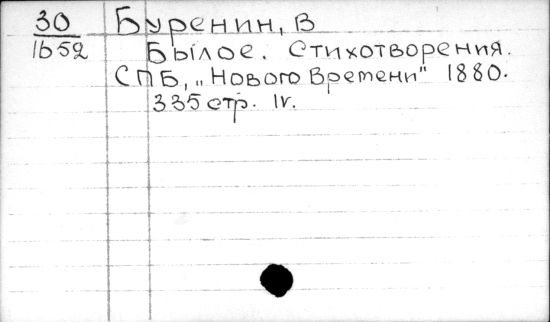 30 Буренин, В
1652 Былое. Стихотворения.
СПБ, „Нового Времени" 1880.
335 стр. 1г.